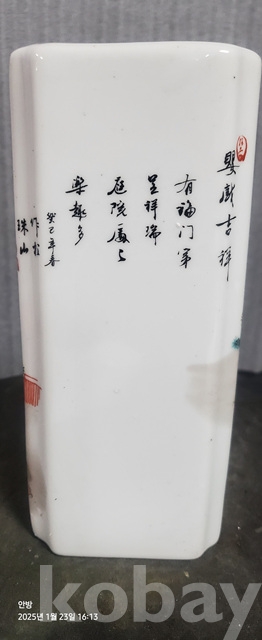 嬰戲吉祥
有福门第
呈祥瑞
庭院處々
樂趣多
癸巳年春
作於
珠山
안방
2025년 1월 23일 16:13
kobay